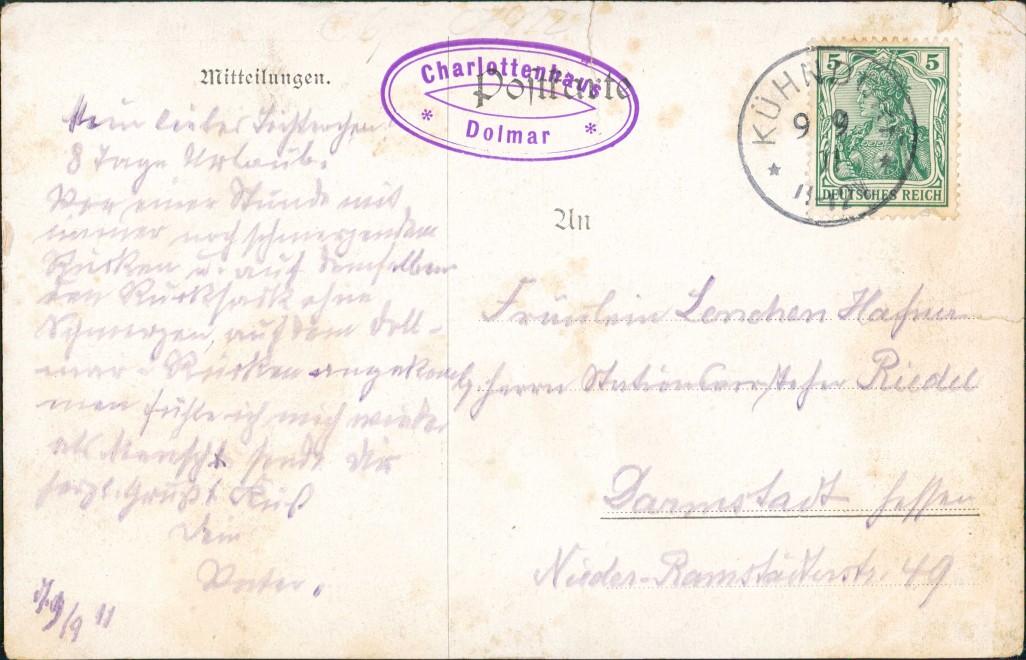 Mitteilungen.
Mein liebes Töchterchen!
8 Tage Urlaub.
Vor einer Stunde mit
immer noch schmerzendem
Rücken u. auf demselben
den Rucksack ohne
Schmerzen, auf dem Doll-
mar-Rücken angekom
men fühle ich mich wieder
als Mensch sende Dir
herzl. Gruß & Kuß
Dein
Vater.
9/9 11
Charlottenhaus
* Dolmar *
Postkarte
An
Fräulein Lenchen
Herrn Stationsvorsteher Riedel
Darmstadt Hessen
Nieder-Ramstädterstr. 49
5 5
DEUTSCHES REICH
KÜHNDORF
9 9
11
11-12